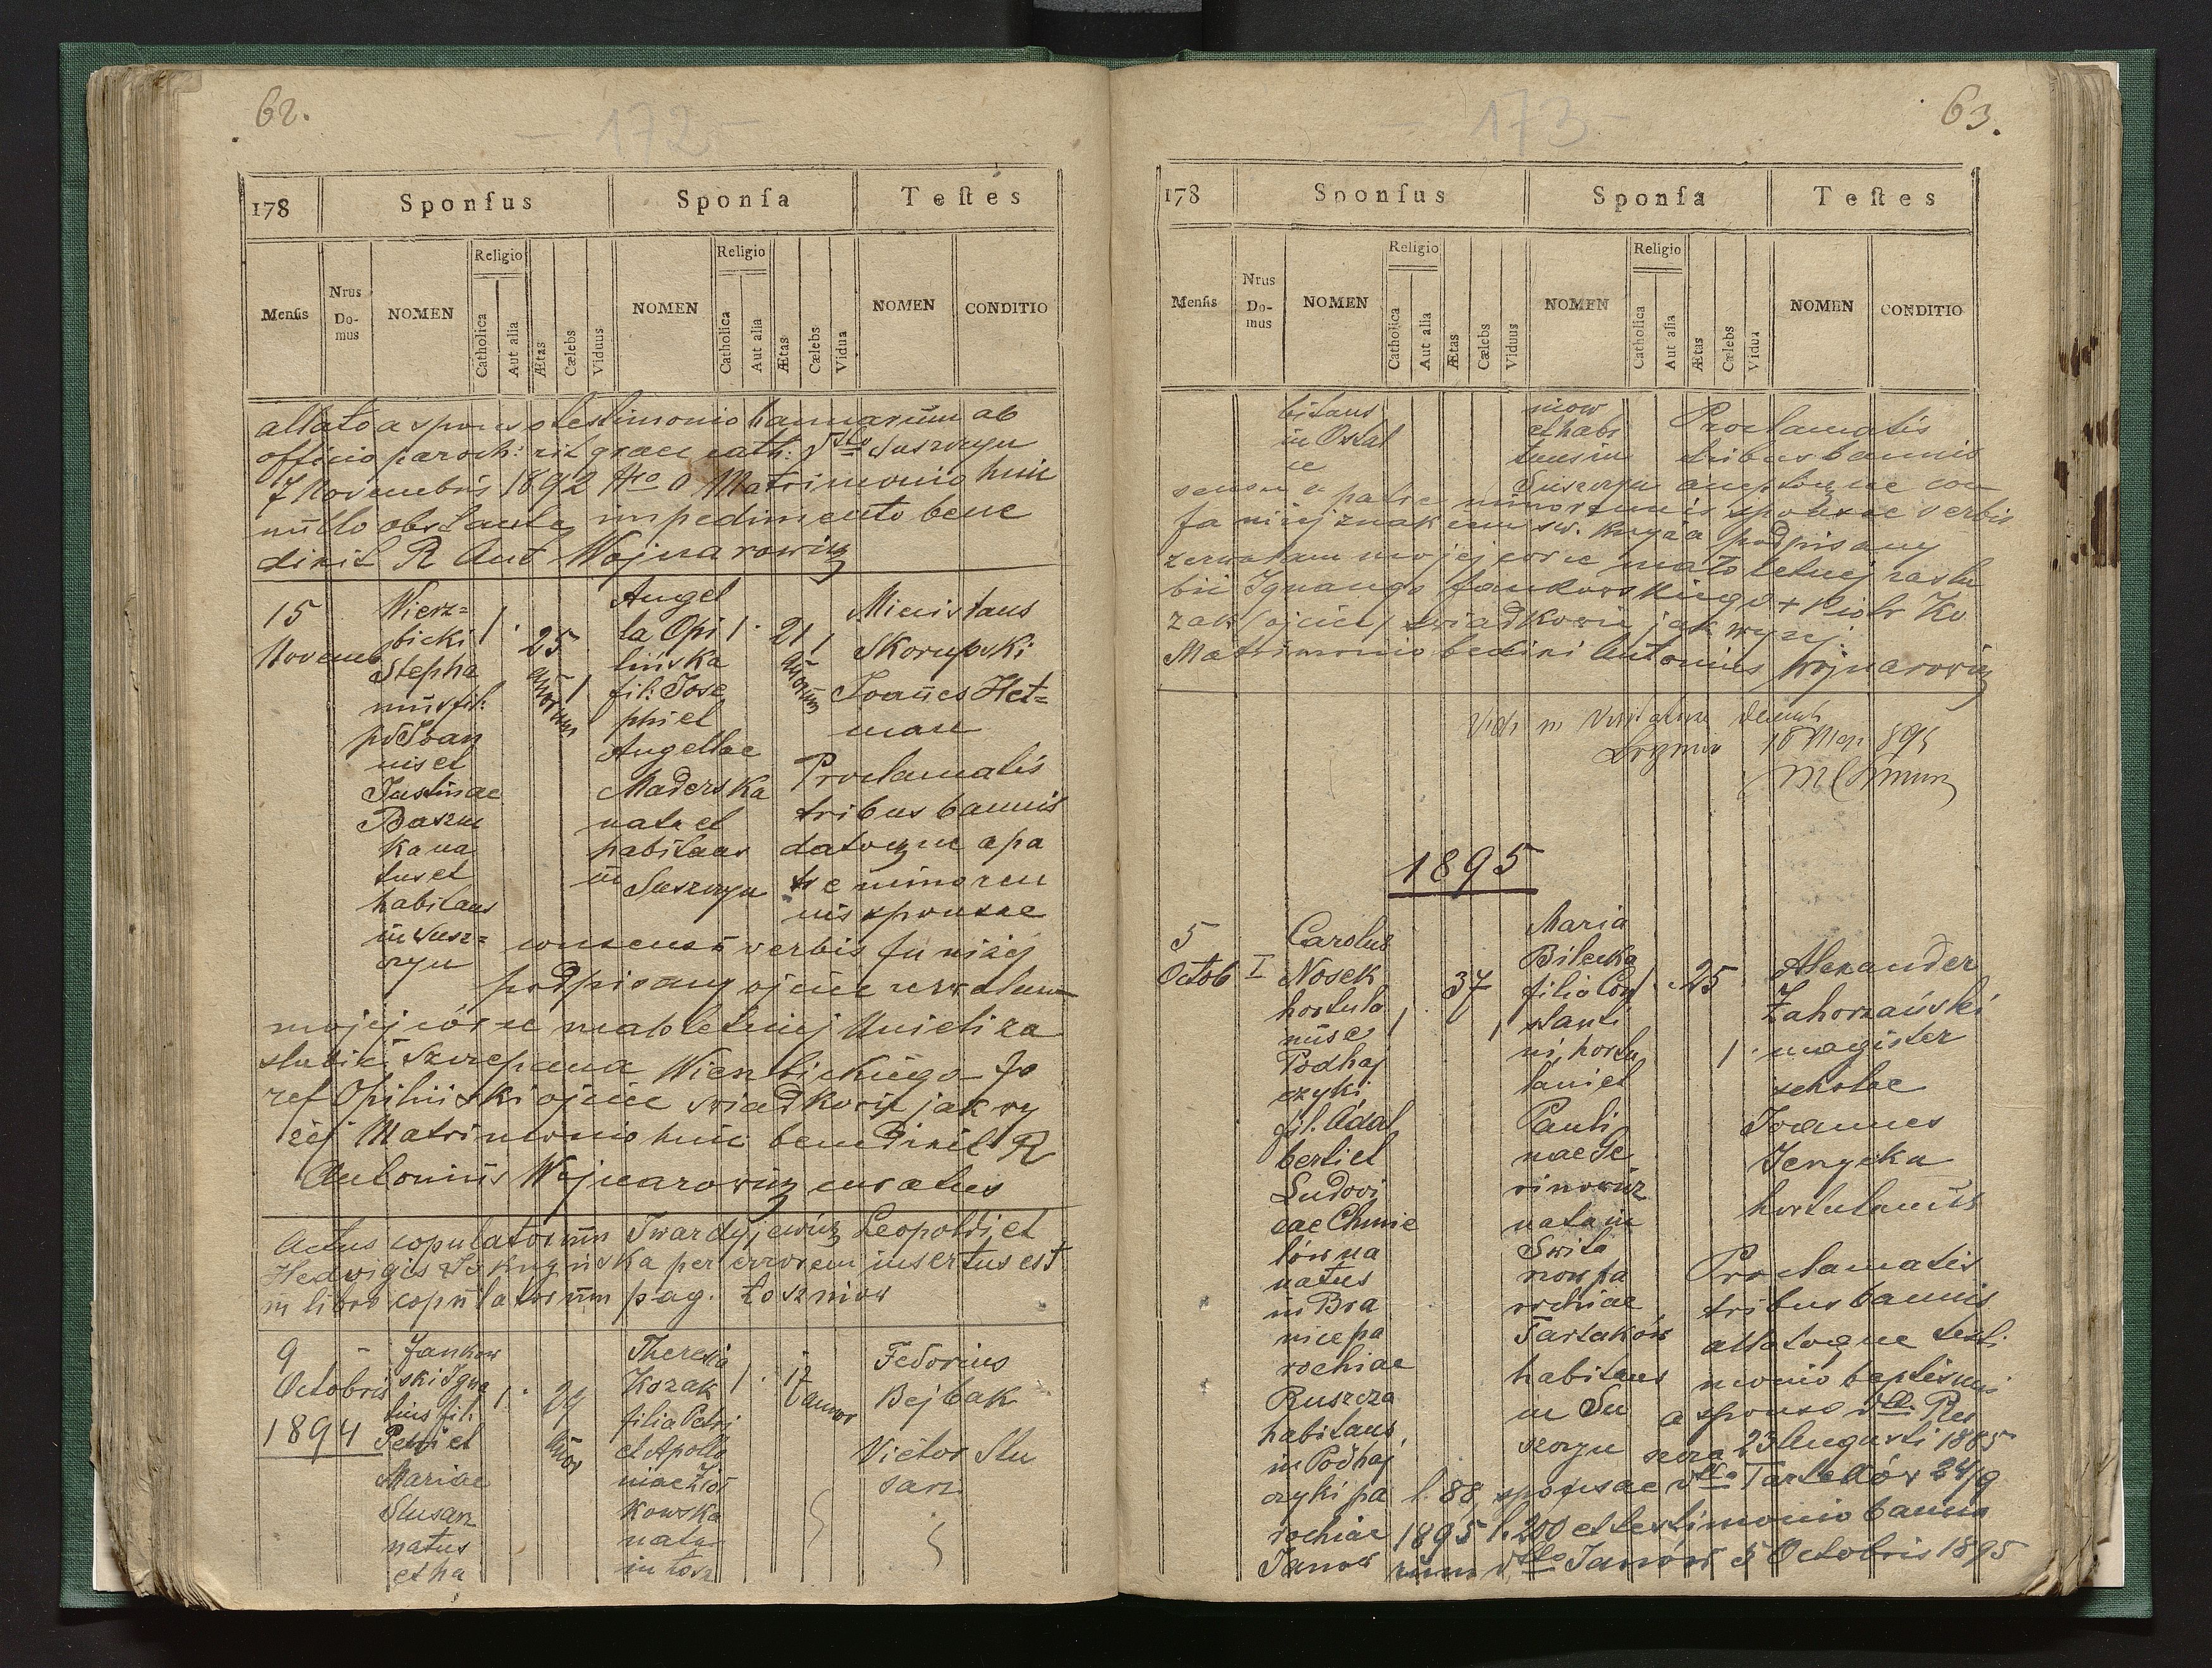 62.
- 172 -
178
Sponſus
Sponſa
Teſtes
Menſis
Nrus Do-mus
NOMEN
Religio
Catholica
Aut alia
Ætas
Cælebs
Viduus
NOMEN
Religio
Catholica
Aut alia
Ætas
Cælebs
Vidua
NOMEN
CONDITIO
allato a sponso testimonio bannorum ab
officio paroch: rit graec cath: dtto Suszczyn
7 Novembris 1892 Matrimonio huic
nullo obstante impedimento bene
dixit R Ant Wojnarowicz
15
Novemb
Wierz=
bicki
Stepha
nus fil:
Joan
nis et
Justinae
Baszn
ka na
tus et
habitans
in Susz=
czyn
1
25
annorum
1
Angel
la Opi
linska
fil: Jose
phi et
Angellae
Maderska
nata et
habitans
in
Suszczyn
1
21
1
annorum
Mieislaus
Skorupski
Joannes Het=
man
Proclamatis
tribus bannis
datoque a pa
tre minoren
nis sponsae
consensu verbis Ja niżej
podpisany ojciec zezwalam
mojej córce małoletniej Anieli za
slubić Szczepana Wierzbickiego Jo
zef Opilinski ojciec swiadkowie jak wy
żej Matrimonio huic benedixit R
Antonius Wojnarowicz curatus
Actus copulatorum Twardyjewicz Leopoldi et
Hedvigis per errorem insertus est
in libro copulatorum pag. Łoszniow
9
Octobris
1894
Jankow
ski Igna
tius fil.
Petri et
Mariae
Slusarz
natus
et ha
1
24
annor
Theresia
Kozak
filia Petri
et Apollo
niae Ziół
kowska
nata
in Łosz
1
17
annor
Fedorius
Bejbak
Victor Slu
sarz
63.
- 173 -
178
Sponſus
Sponſa
Teſtes
Menſis
Nrus Do-mus
NOMEN
Religio
Catholica
Aut alia
Ætas
Cælebs
Viduus
NOMEN
Religio
Catholica
Aut alia
Ætas
Cælebs
Vidua
NOMEN
CONDITIO
bitans
in Ostal
ce
niow
et habi
tans in
Suszczyn
Proclamatis
tribus bannis
acceptoque con
sensu a patre minorennis sponsae verbis
Ja niżej znakiem św. krzyża podpisany
zezwalam mojej córce małoletniej zaslu
bić Ignacego Jankowskiego + Piotr Ko
zak ojciec, swiadkowie jak wyżej
Matrimonio bedixi Antonius Wojnarowicz
Vidi in Visitatione decanali
18 Maji 895
1895
5
Octob
I
Carolus
Nosek
hortula
nus e
Podhaj
czyki
fil. Adal
berti et
Ludovi
cae Chmie
lówna
natus
in Bra
nice pa
rochiae
Ruszcza
habitans
in Podhaj
czyki pa
rochiae
Janow
1
37
1
Maria
Bilecka
filia Con
stanti
ni hortu
lani et
Pauli
nae Se
rinowicz
nata in
Swita
now pa
rochiae
Tartaków
habitans
in Su
szczyn
1
25
1
Alexander
Zahorzański
magister
scholae
Joannes
Jenycku
hortulanus
Proclamatis
tribus bannis
allatoque testi
monio baptismi
a sponso dtto Rus
zcza 23 Augusti 1885
l. 88, sponsae dtto Tartaków 24/9
1895 l. 200 et testimonio banno
rum dtto Janów 5 Octobris 1895